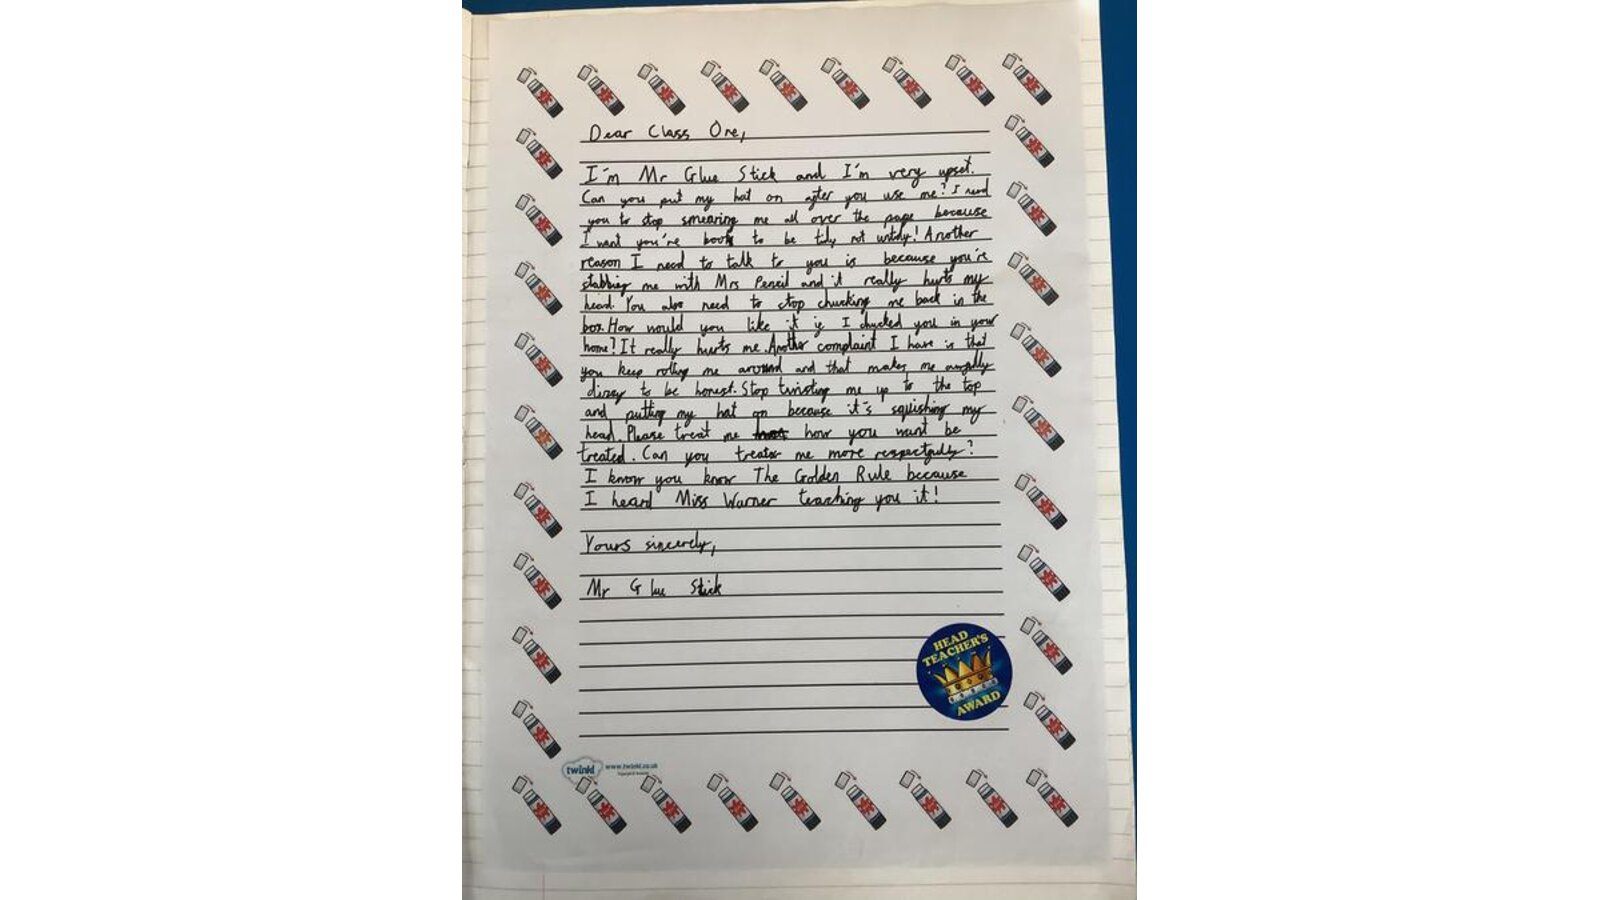 Dear Class One,
I'm Mr Glue Stick and I'm very upset.
Can you put my hat on after you use me? I need
you to stop smearing me all over the page because
I want you're books to be tidy not untidy! Another
reason I need to talk to you is because you're
stabbing me with Mrs Pencil and it really hurts my
head. You also need to stop chucking me back in the
box. How would you like it if I chucked you in your
home? It really hurts me. Another complaint I have is that
you keep rolling me around and that makes me awfully
dizzy to be honest. Stop twisting me up to the top
and putting my hat on because it's squishing my
head. Please treat me how you want be
treated. Can you treat me more respectfully?
I know you know The Golden Rule because
I heard Miss Warner teaching you it!
Yours sincerely,
Mr Glue Stick
HEAD
TEACHER'S
AWARD
twinkl www.twinkl.co.uk